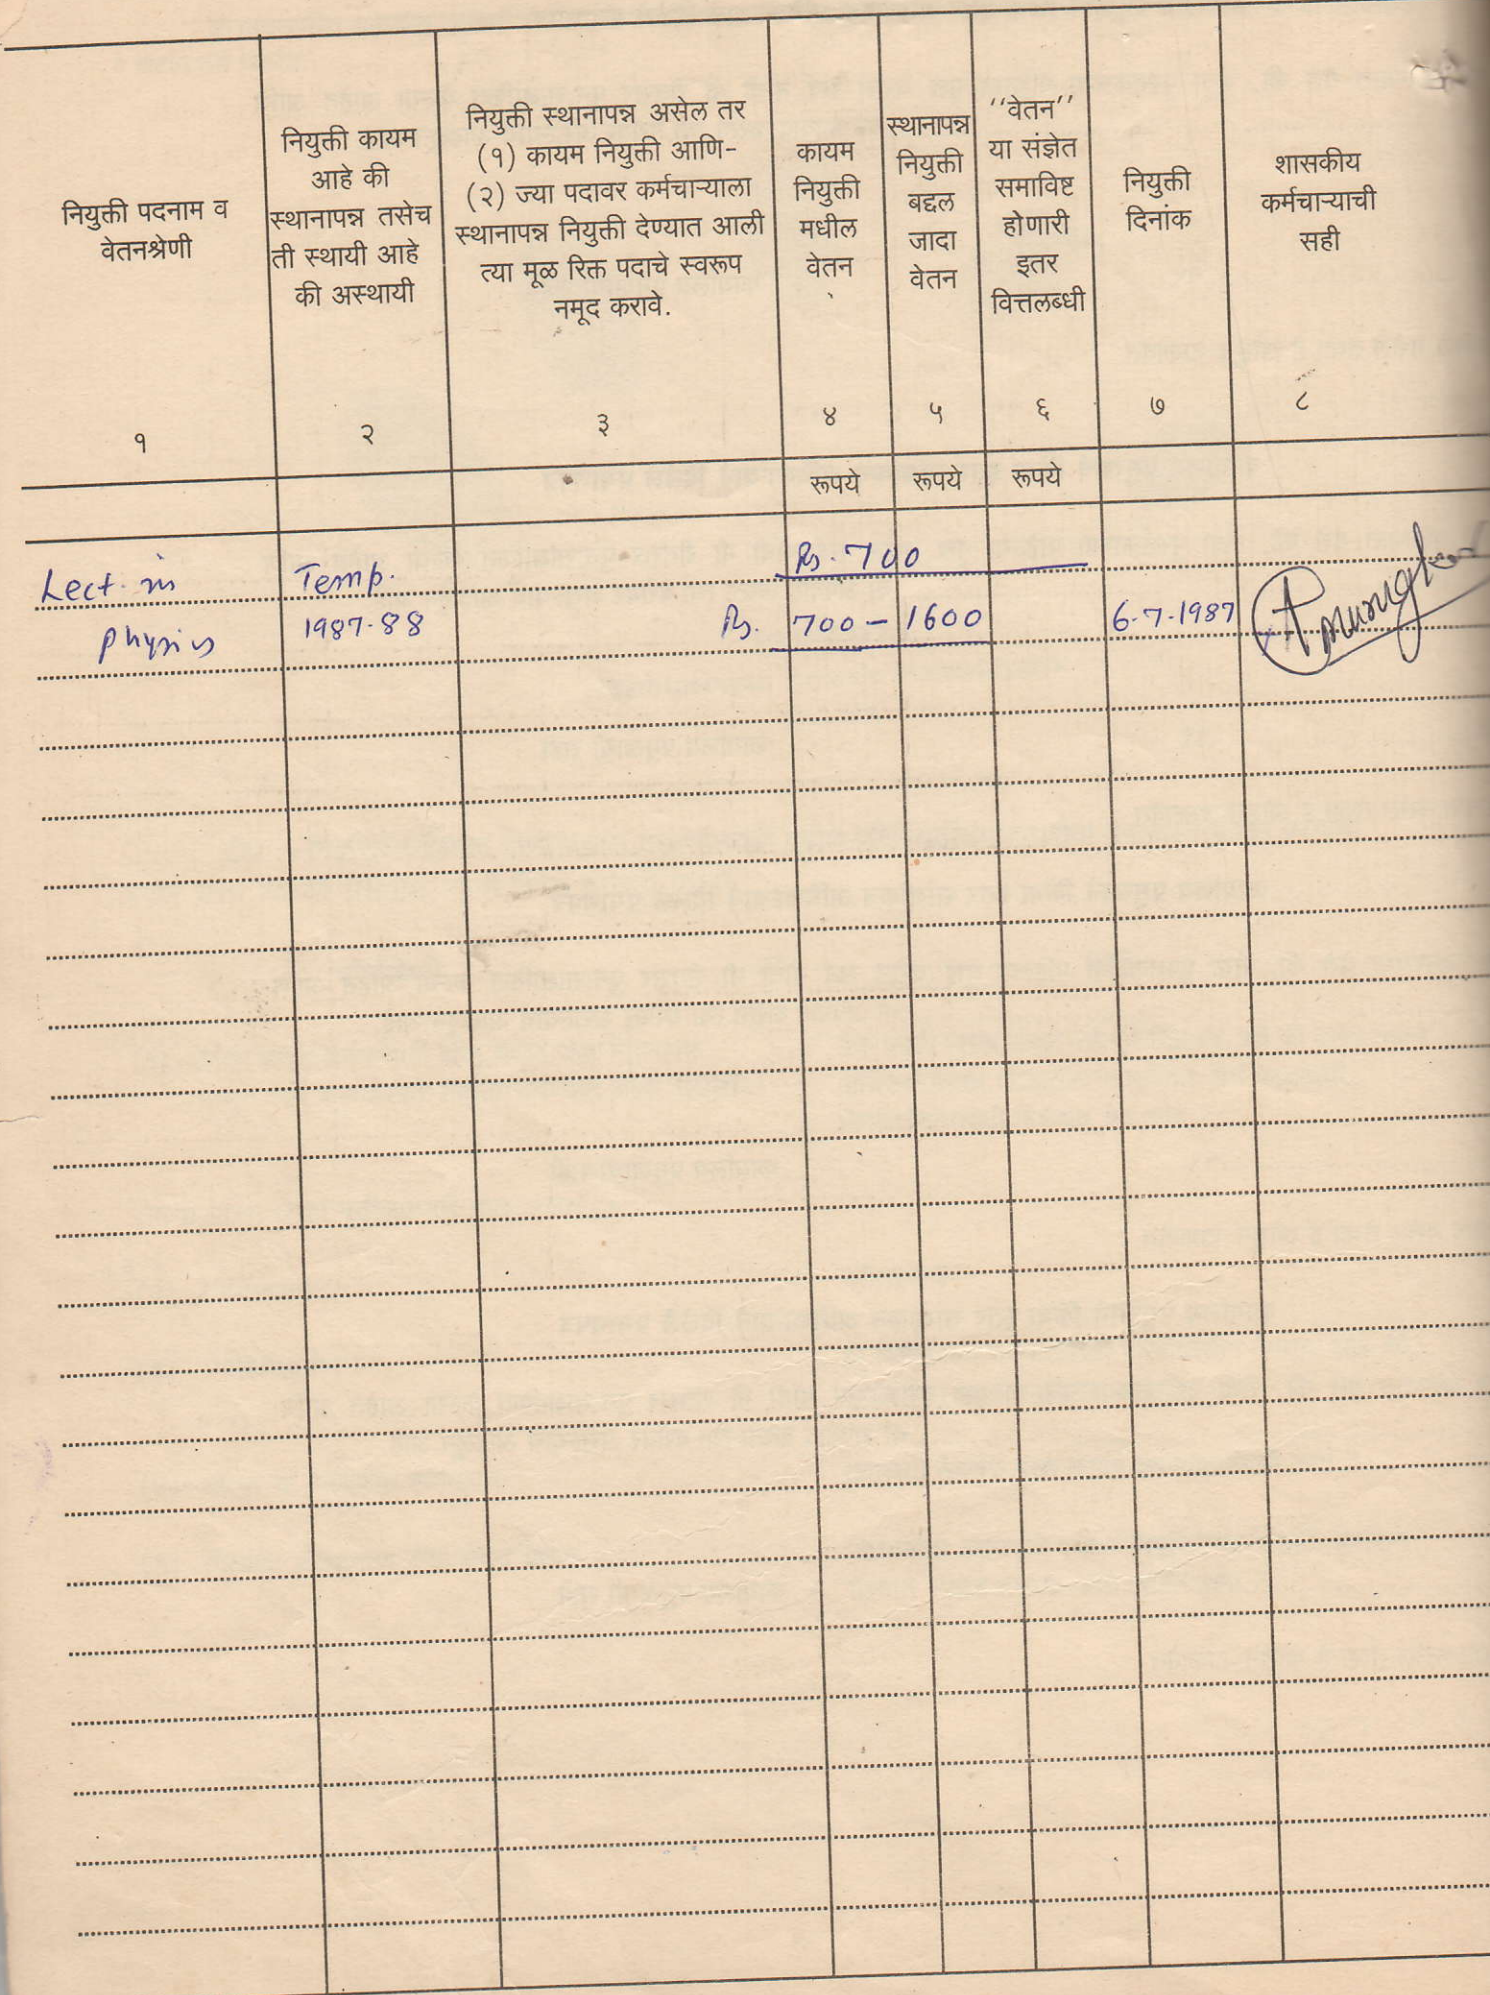 नियुक्ती पदनाम व
वेतनश्रेणी
नियुक्ती कायम
आहे की
स्थानापन्न तसेच
ती स्थायी आहे
की अस्थायी
नियुक्ती स्थानापन्न असेल तर
(१) कायम नियुक्ती आणि-
(२) ज्या पदावर कर्मचाऱ्याला
स्थानापन्न नियुक्ती देण्यात आली
त्या मूळ रिक्त पदाचे स्वरूप
नमूद करावे.
कायम
नियुक्ती
मधील
वेतन
स्थानापन्न
नियुक्ती
बद्दल
जादा
वेतन
''वेतन''
या संज्ञेत
समाविष्ट
होणारी
इतर
वित्तलब्धी
नियुक्ती
दिनांक
शासकीय
कर्मचाऱ्याची
सही
१ २ ३ ४ ५ ६ ७ ८
रूपये रूपये रूपये
Lect. in Temp. Rs. 700
Physics 1987-88 Rs. 700 - 1600 6-7-1987